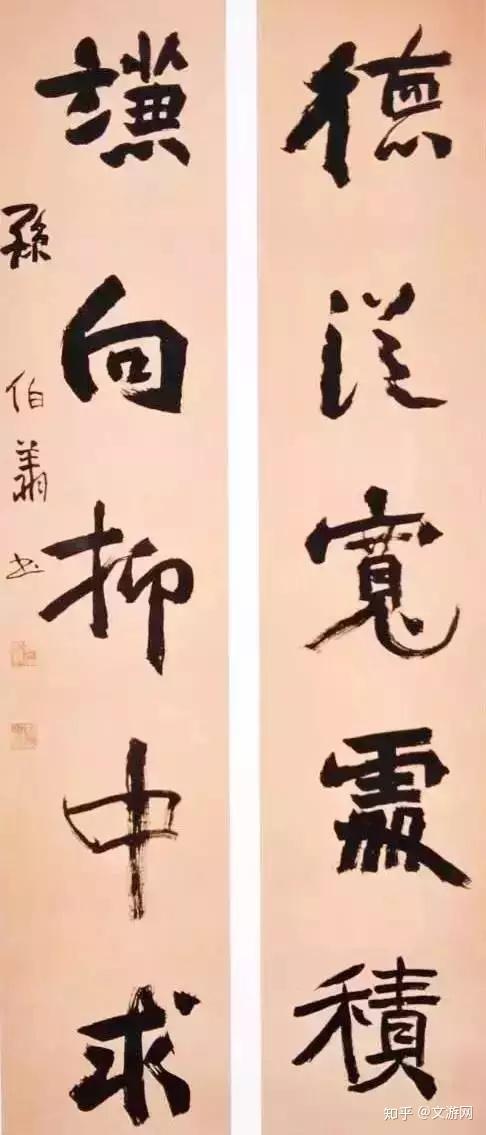 德從寬處積
謙向抑中求
孫伯翔书
知乎 @文游网